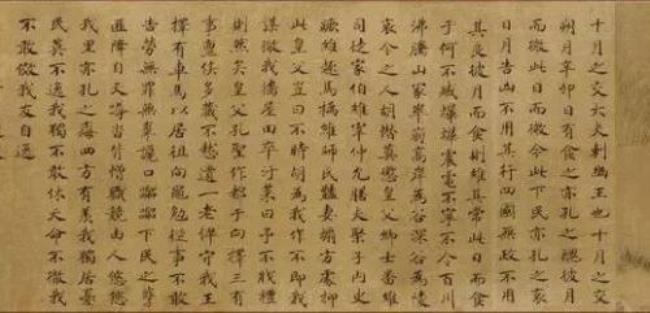 十月之交大夫刺幽王也十月之交
朔月辛卯日有食之亦孔之醜彼月
而微此日而微今此下民亦孔之哀
日月告凶不用其行四國無政不用
其良彼月而食則維其常此日而食
于何不臧爗爗震電不寧不令百川
沸騰山冢崒崩高岸為谷深谷為陵
哀今之人胡憯莫懲皇父卿士番維
司徒家伯維宰仲允膳夫棸子內史
蹶維趣馬楀維師氏豔妻煽方處抑
此皇父豈曰不時胡為我作不即我
謀徹我牆屋田卒汙萊曰予不戕禮
則然矣皇父孔聖作都于向擇三有
事亶侯多藏不憖遺一老俾守我王
擇有車馬以居徂向黽勉從事不敢
告勞無罪無辜讒口嚻嚻下民之孽
匪降自天噂沓背憎職競由人悠悠
我里亦孔之痗四方有羨我獨居憂
民莫不逸我獨不敢休天命不徹我
不敢傚我友自逸